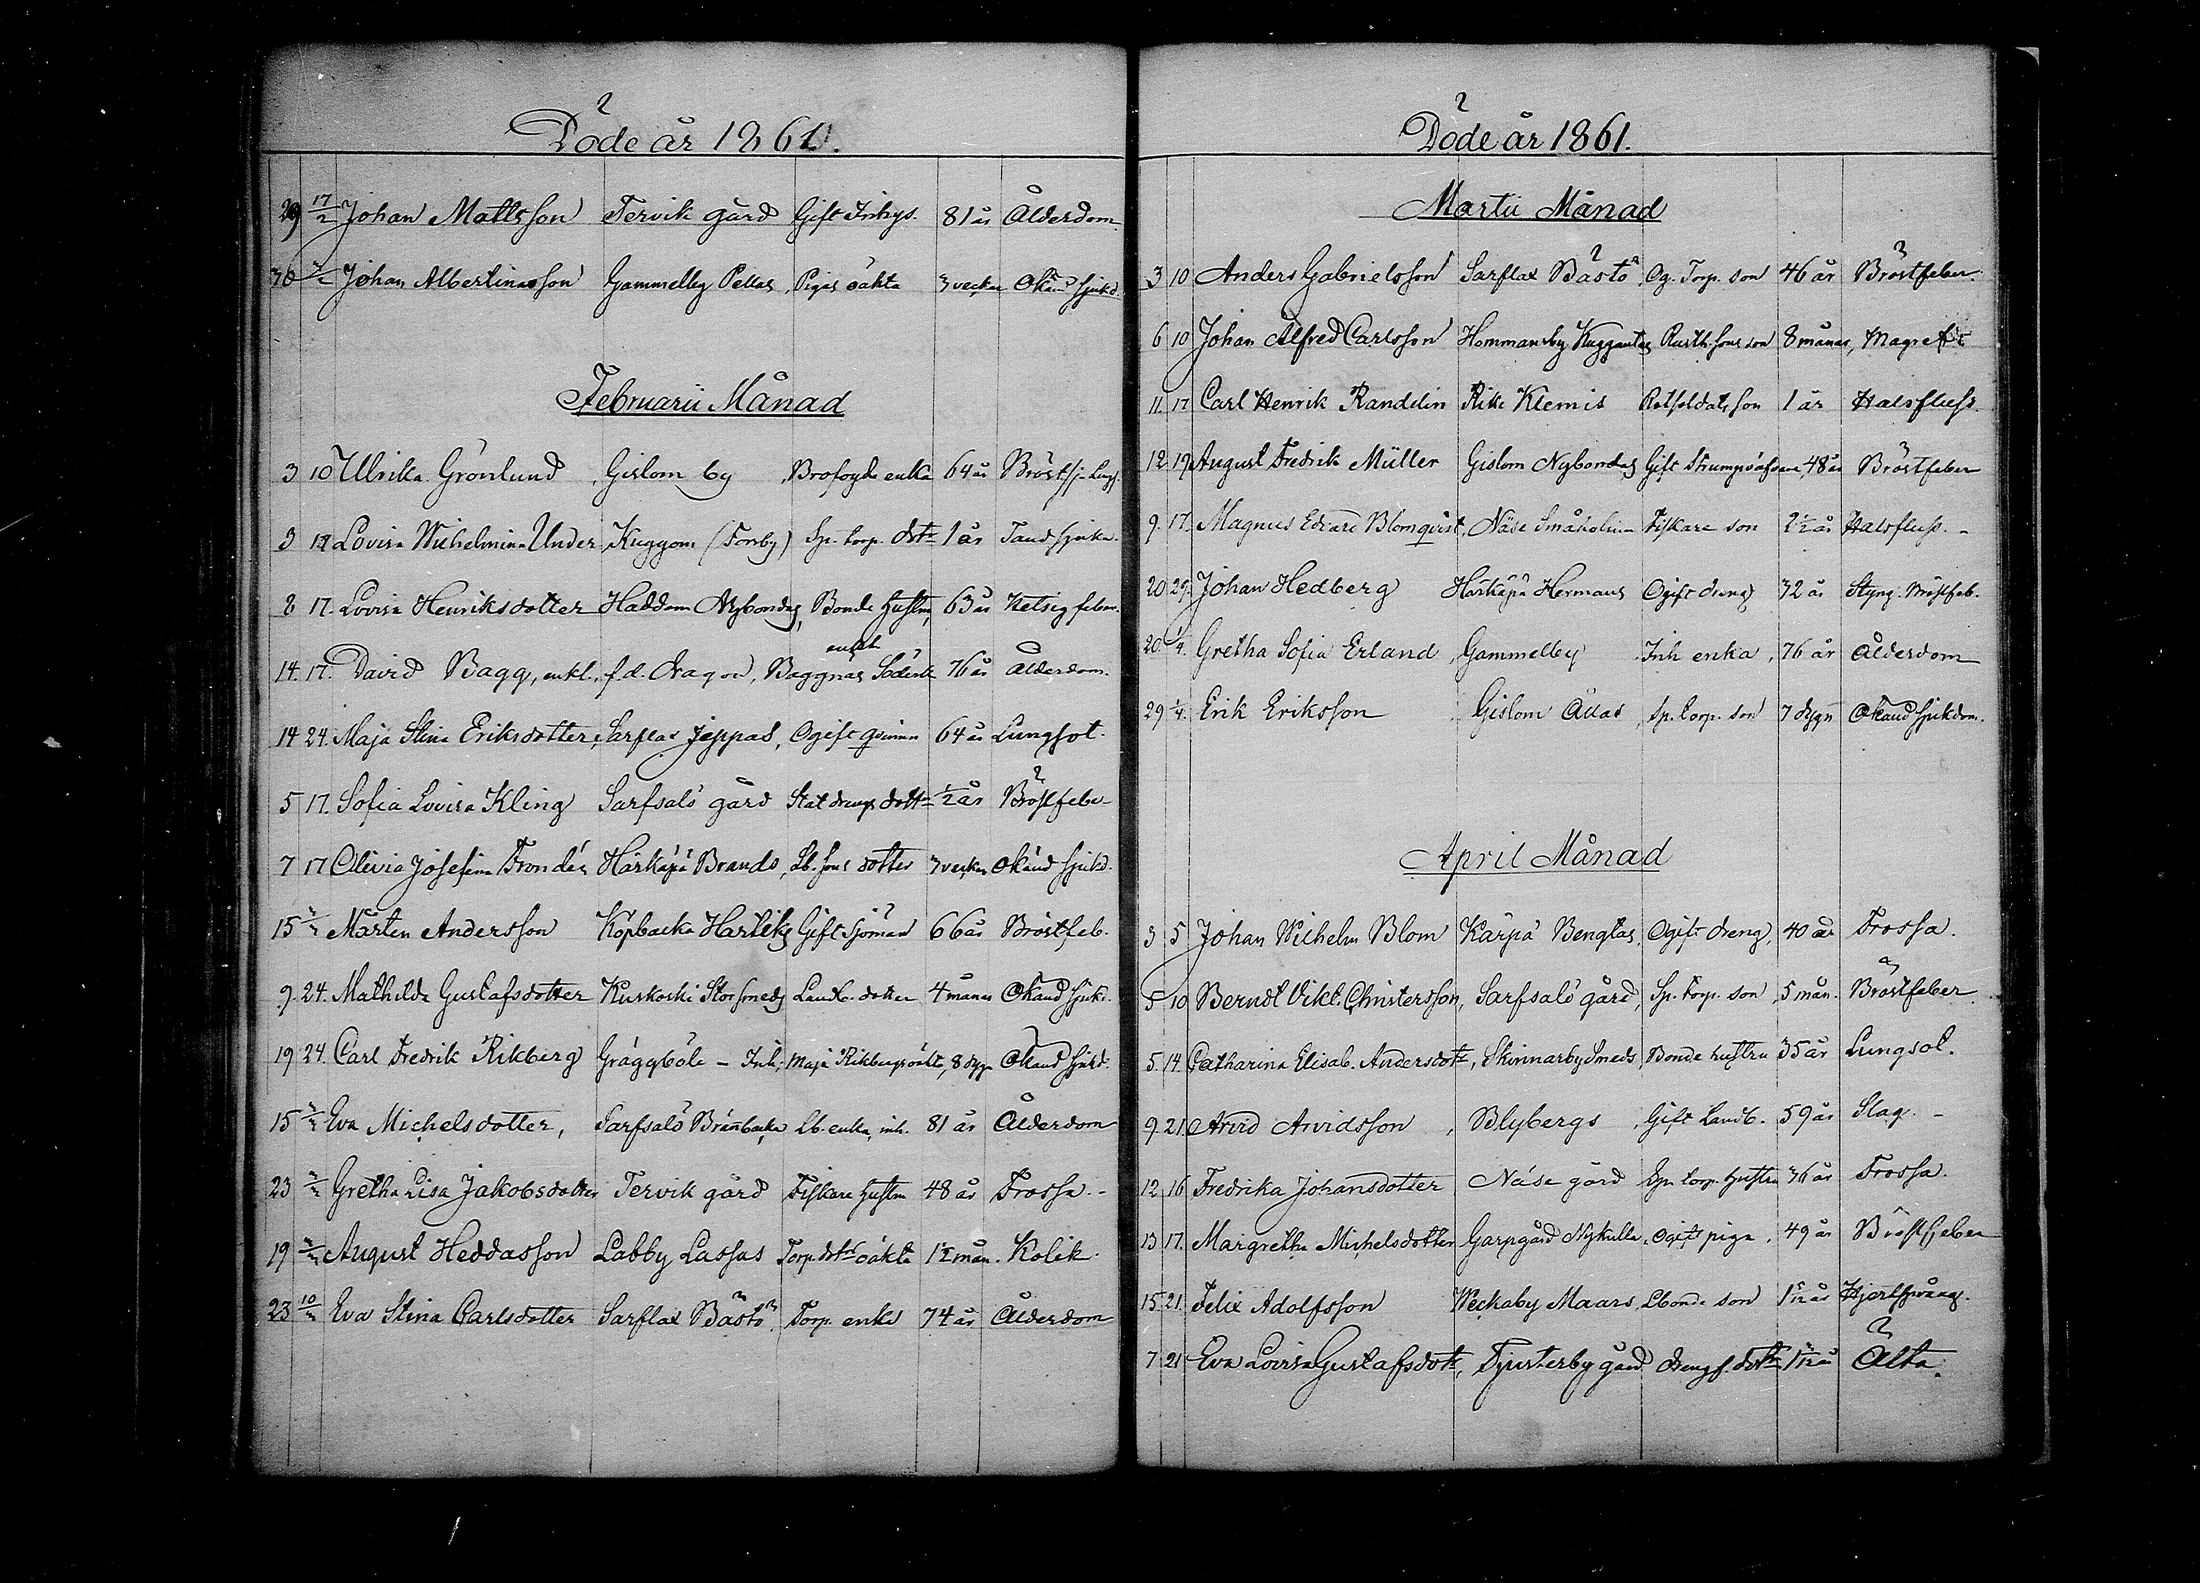 Döde år 1861.
29 17/2 Johan Mattsson Tervik gård Gift Inhys. 81 år Ålderdom.
30 3/2 Johan Albertinasson Gammelby Pellas Pigas oäkta 3 veckor Okänd sjukd.
Februarii Månad
3 10 Ulrika Grönlund Gislom by enka 64 år Bröstsj.
3 Lovisa Wilhelmina Under Kuggom (Forsby) Sp. torp. dotr 1 år Tandsjuka.
8 17. Lovisa Henriksdotter Haddom Nybondas, Bonde hustru, 63 år Hetsig feber.
14. 17. David Bagg, enkl., f.d. dragon, Baggnäs 76 år Ålderdom.
14 24. Maja Stina Eriksdotter, Sarflax Jeppas, Ogift qvinna 64 år Lungsot.
5 17. Sofia Lovisa Kling Sarfsalö gård Statdrengs dotter 1/2 år Bröstfeber
7 17 Olivia Josefina Trondén Härkäpä Brands, Lb. sons dotter 3 veckor Okänd sjukd.
15 3/3 Mårten Andersson Köpbacka Hartviks Gift Sjöman 66 år Bröstfeb.
9. 24. Mathilda Gustafsdotter Kuskoski Storsmeds Landb. dotter 4 måner Okänd sjukd.
19 24. Carl Fredrik Rikberg Gräggböle – Inh. Maja Rikbergs oäkta, 8 dygn Okänd sjukd.
15 3/3 Eva Michelsdotter, Sarfsalö Brännbacka Lb. enka, inh. 81 år Ålderdom
23 3/3 Gretha Lisa Jakobsdotter Tervik gård Fiskare hustru 48 år Frossa. -
19 3/3 August Heddasson Labby Lassas Torp. dotrs oäkta 1 1/2 mån. Kolik.
23 10/3 Eva Stina Carlsdotter Sarflax Båstö. Torp. enka 74 år Ålderdom
Döde år 1861.
Martii Månad
3 10 Anders Gabrielsson Sarflax Båstö, Og. Torp. son 46 år Bröstfeber.
6 10 Johan Alfred Carlsson Hommansby Kuggantas Rusth. sons son 8 månar,
11. 17 Carl Henrik Randelin Rike Klemis Rotsoldats son 1 år Halsfluss.
12 19 August Fredrik Müller Gislom Nybondas Gift 48 år Bröstfeber
9. 17. Magnus Edvard Blomqvist, Näse Småholm Fiskare son 2 1/2 år Halsfluss. -
20 29. Johan Hedberg Härkäpä Hermans Ogift dreng 32 år Styng. Bröstfeb.
20. 1/4. Gretha Sofia Erland, Gammelby Inh enka, 76 år Ålderdom
29 1/4. Erik Eriksson Gislom Ållas, Sp. torp. son 7 dygn Okänd sjukdom.
April Månad
3 5 Johan Wilhelm Blom Kärpä Bengtas, Ogift dreng, 40 år Frossa.
5 10 Berndt Vikt. Christersson, Sarfsalö gård, Sp. torp. son, 5 mån. Bröstfeber.
5. 14. Catharina Elisab. Andersdotr, Skinnarby Smeds, Bonde hustru 35 år Lungsot.
9. 21. Arvid Arvidsson, Blybergs, Gift Landb. 59 år Slag. -
12, 16 Fredrika Johansdotter Näse gård Sp. torp. hustru 36 år Frossa.
13 17. Margretha Michelsdotter Garpgård Nykulla, Ogift piga, 49 år Bröstfeber
15. 21. Felix Adolfsson Weckaby Maars, Lbonde son 1 5/12 år Hjertsprång.
7 21 Eva Lovisa Gustafsdotr, Tjusterby gård drengs. dotr Älta.